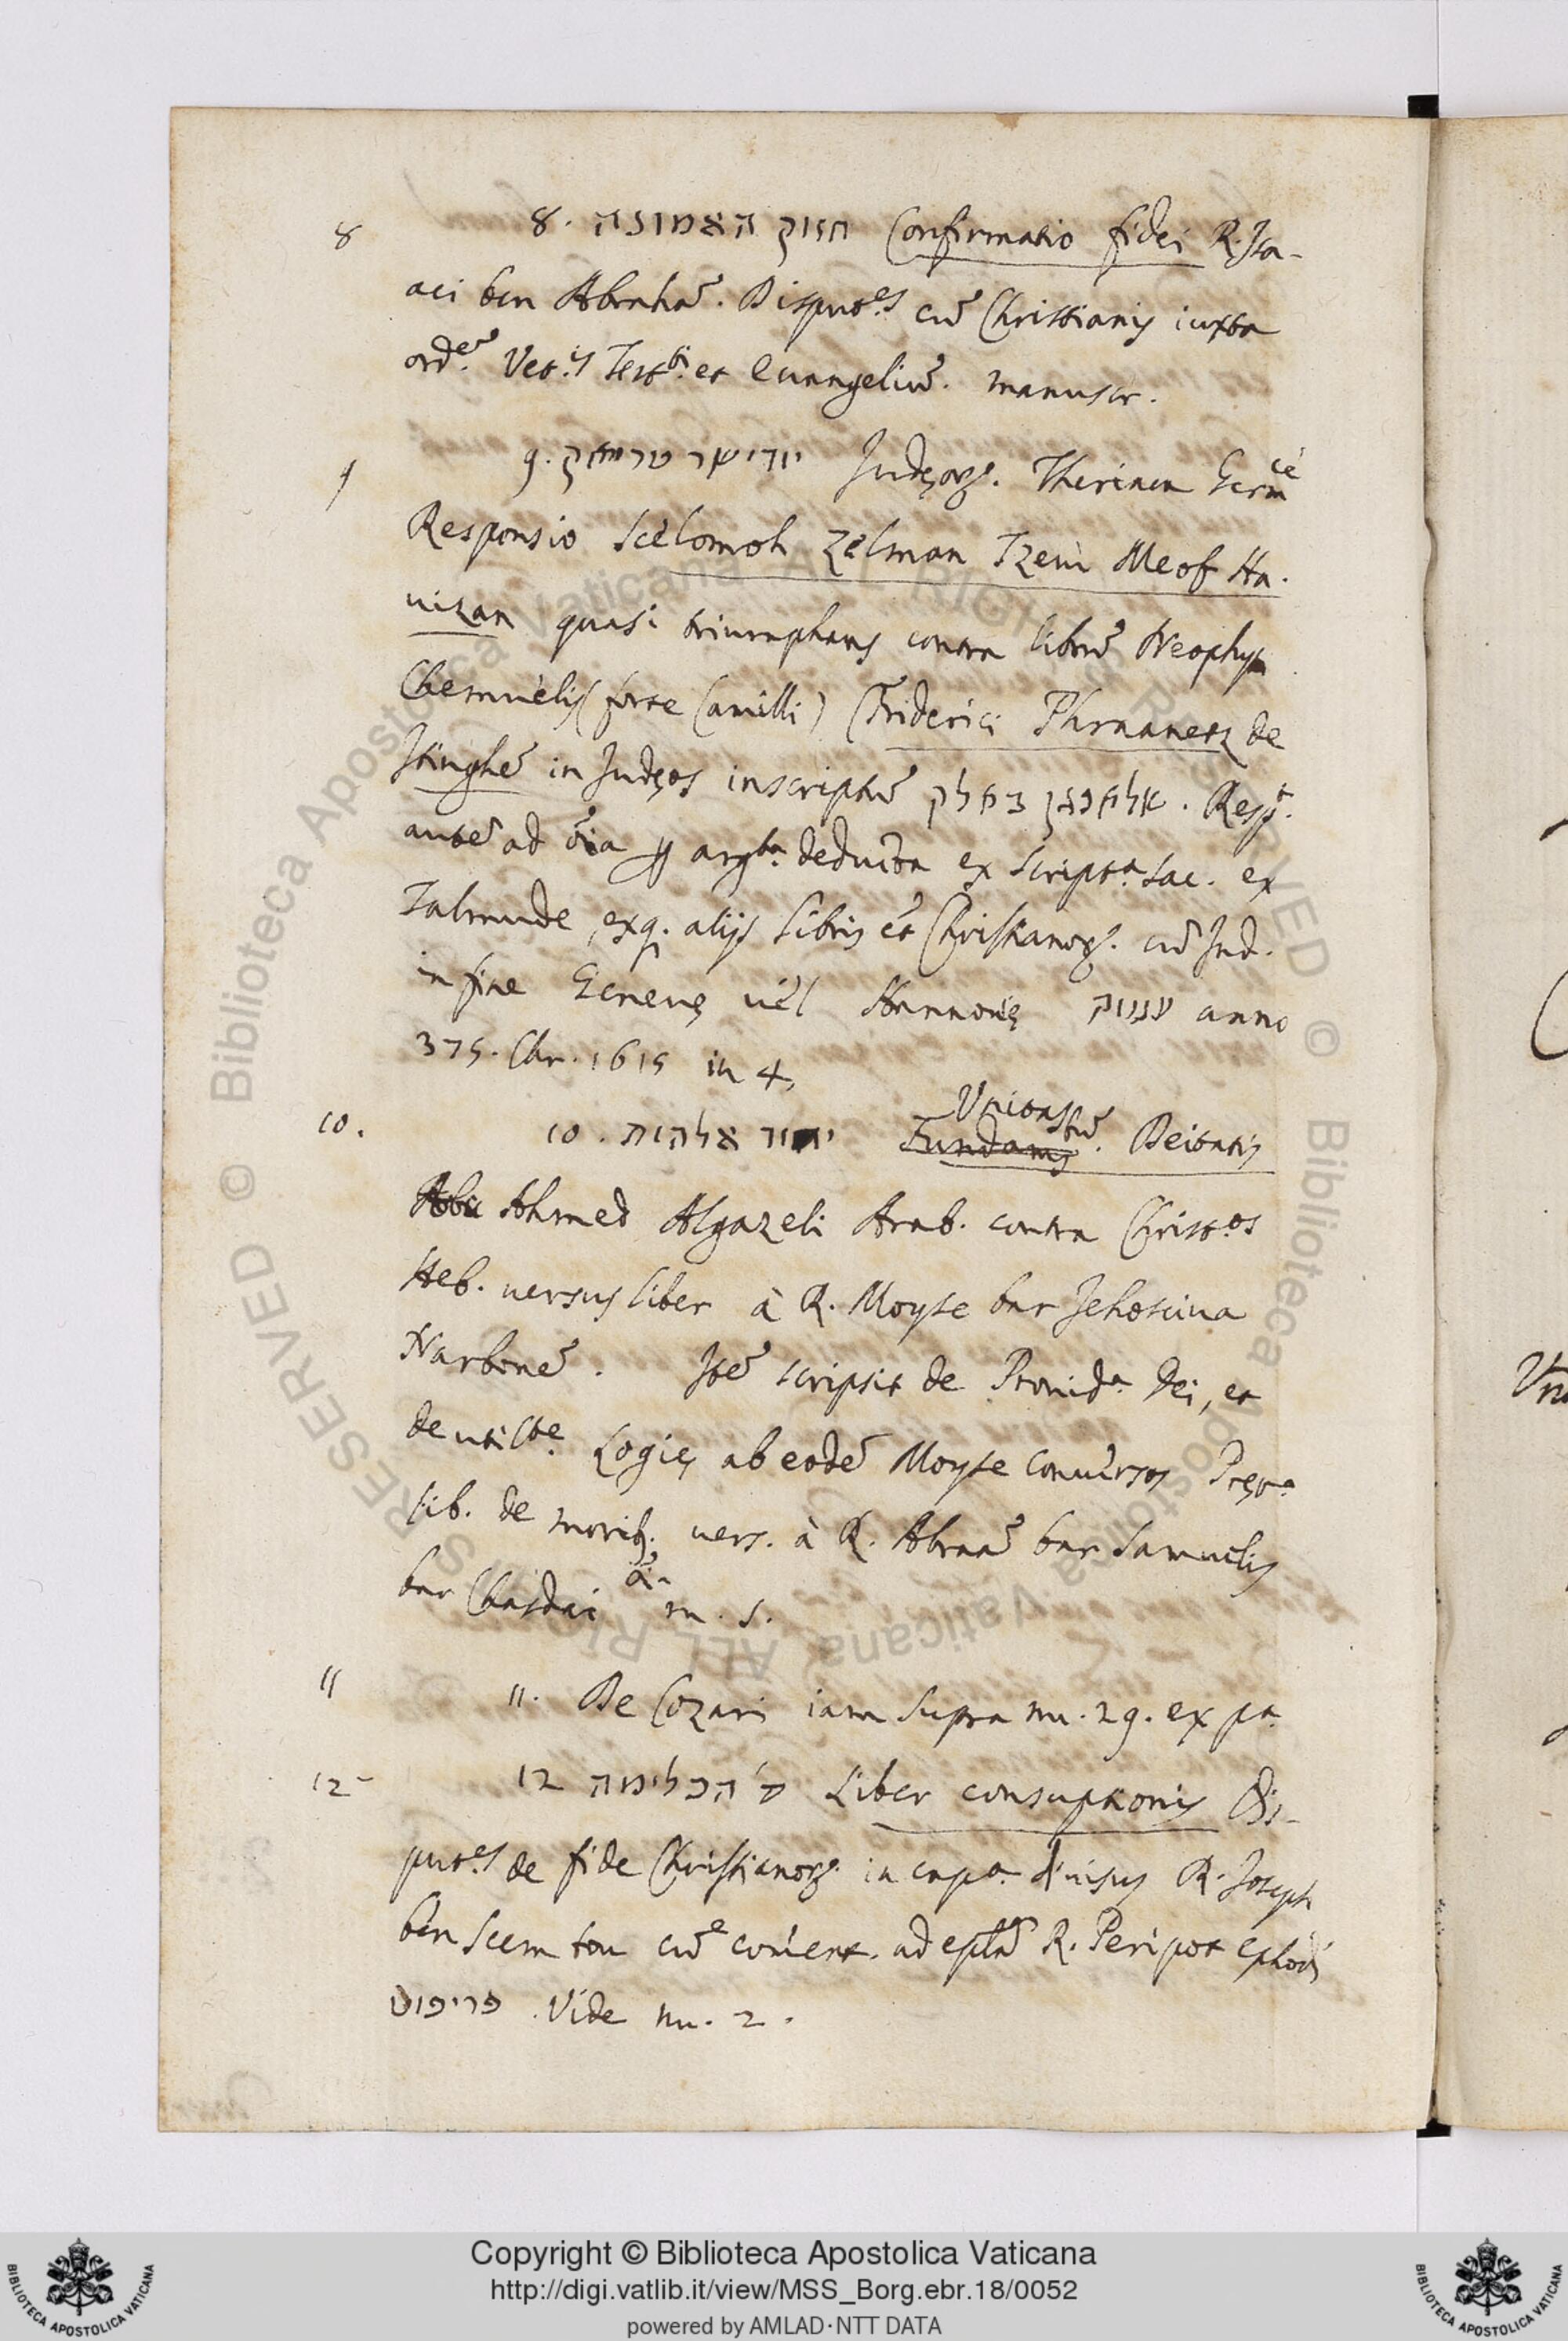 8 8. חזוק האמונה Confirmatio fidei R. Isa-
aci ben Abrahã. Disputes cũ Christianis iuxta
ordẽ Vet.is Testti et Evangeliũ. manuscr.
9 9. יודישר טריאק Judęorũ. Theriaca Germcè
Responsio Scelomoh Zelman Tzevi Meof Ha-
uizan quasi triumphans contra librũ Neophyti
Chemuelis (forse Camilli) (Friderici Phrnanetz de
Itinghẽ in Judęos inscriptũ Respt.
autẽ ad õia argta deducta ex script.a sac. ex
Talmude, exq. alijs libris et Christianorũ. cũ Jud.
in fine Genevę vel Hannovię ענווק anno
375. Chr. 1615 in 4.
10. 10. יחוד אלהות Unitas
Deitatis
Abu Ahmed Algazeli Arab. contra Christ.os
Heb. versus liber à R. Moyse bar Jehosciua
Narbonẽ. Itẽ scripsit de Provid.a Dei, et
de utiltte. Logię ab eodẽ Moyse conversos
lib. de morib. vers. à R. Abraã bar Samuelis
bar Chasdai m. s.
11 11. De Cozari iam supra nu. 29. ex pa.
12 12 ס' הכלימה Liber consuptionis Dis-
put.es de fide Christianorũ. in cap.a divisus R. Joseph
ben Scem tou cũ coment. ad epłã R. Peripot Ephodi
פריפוט. Vide nu. 2.
Copyright © Biblioteca Apostolica Vaticana
http://digi.vatlib.it/view/MSS_Borg.ebr.18/0052
powered by AMLAD·NTT DATA